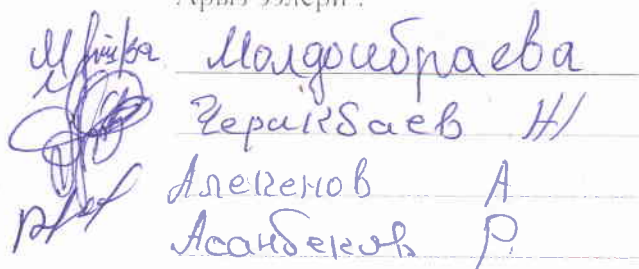 Арыз ээлери :
Молдоибраева
Черикбаев Ж
Алекенов А
Асанбеков Р.